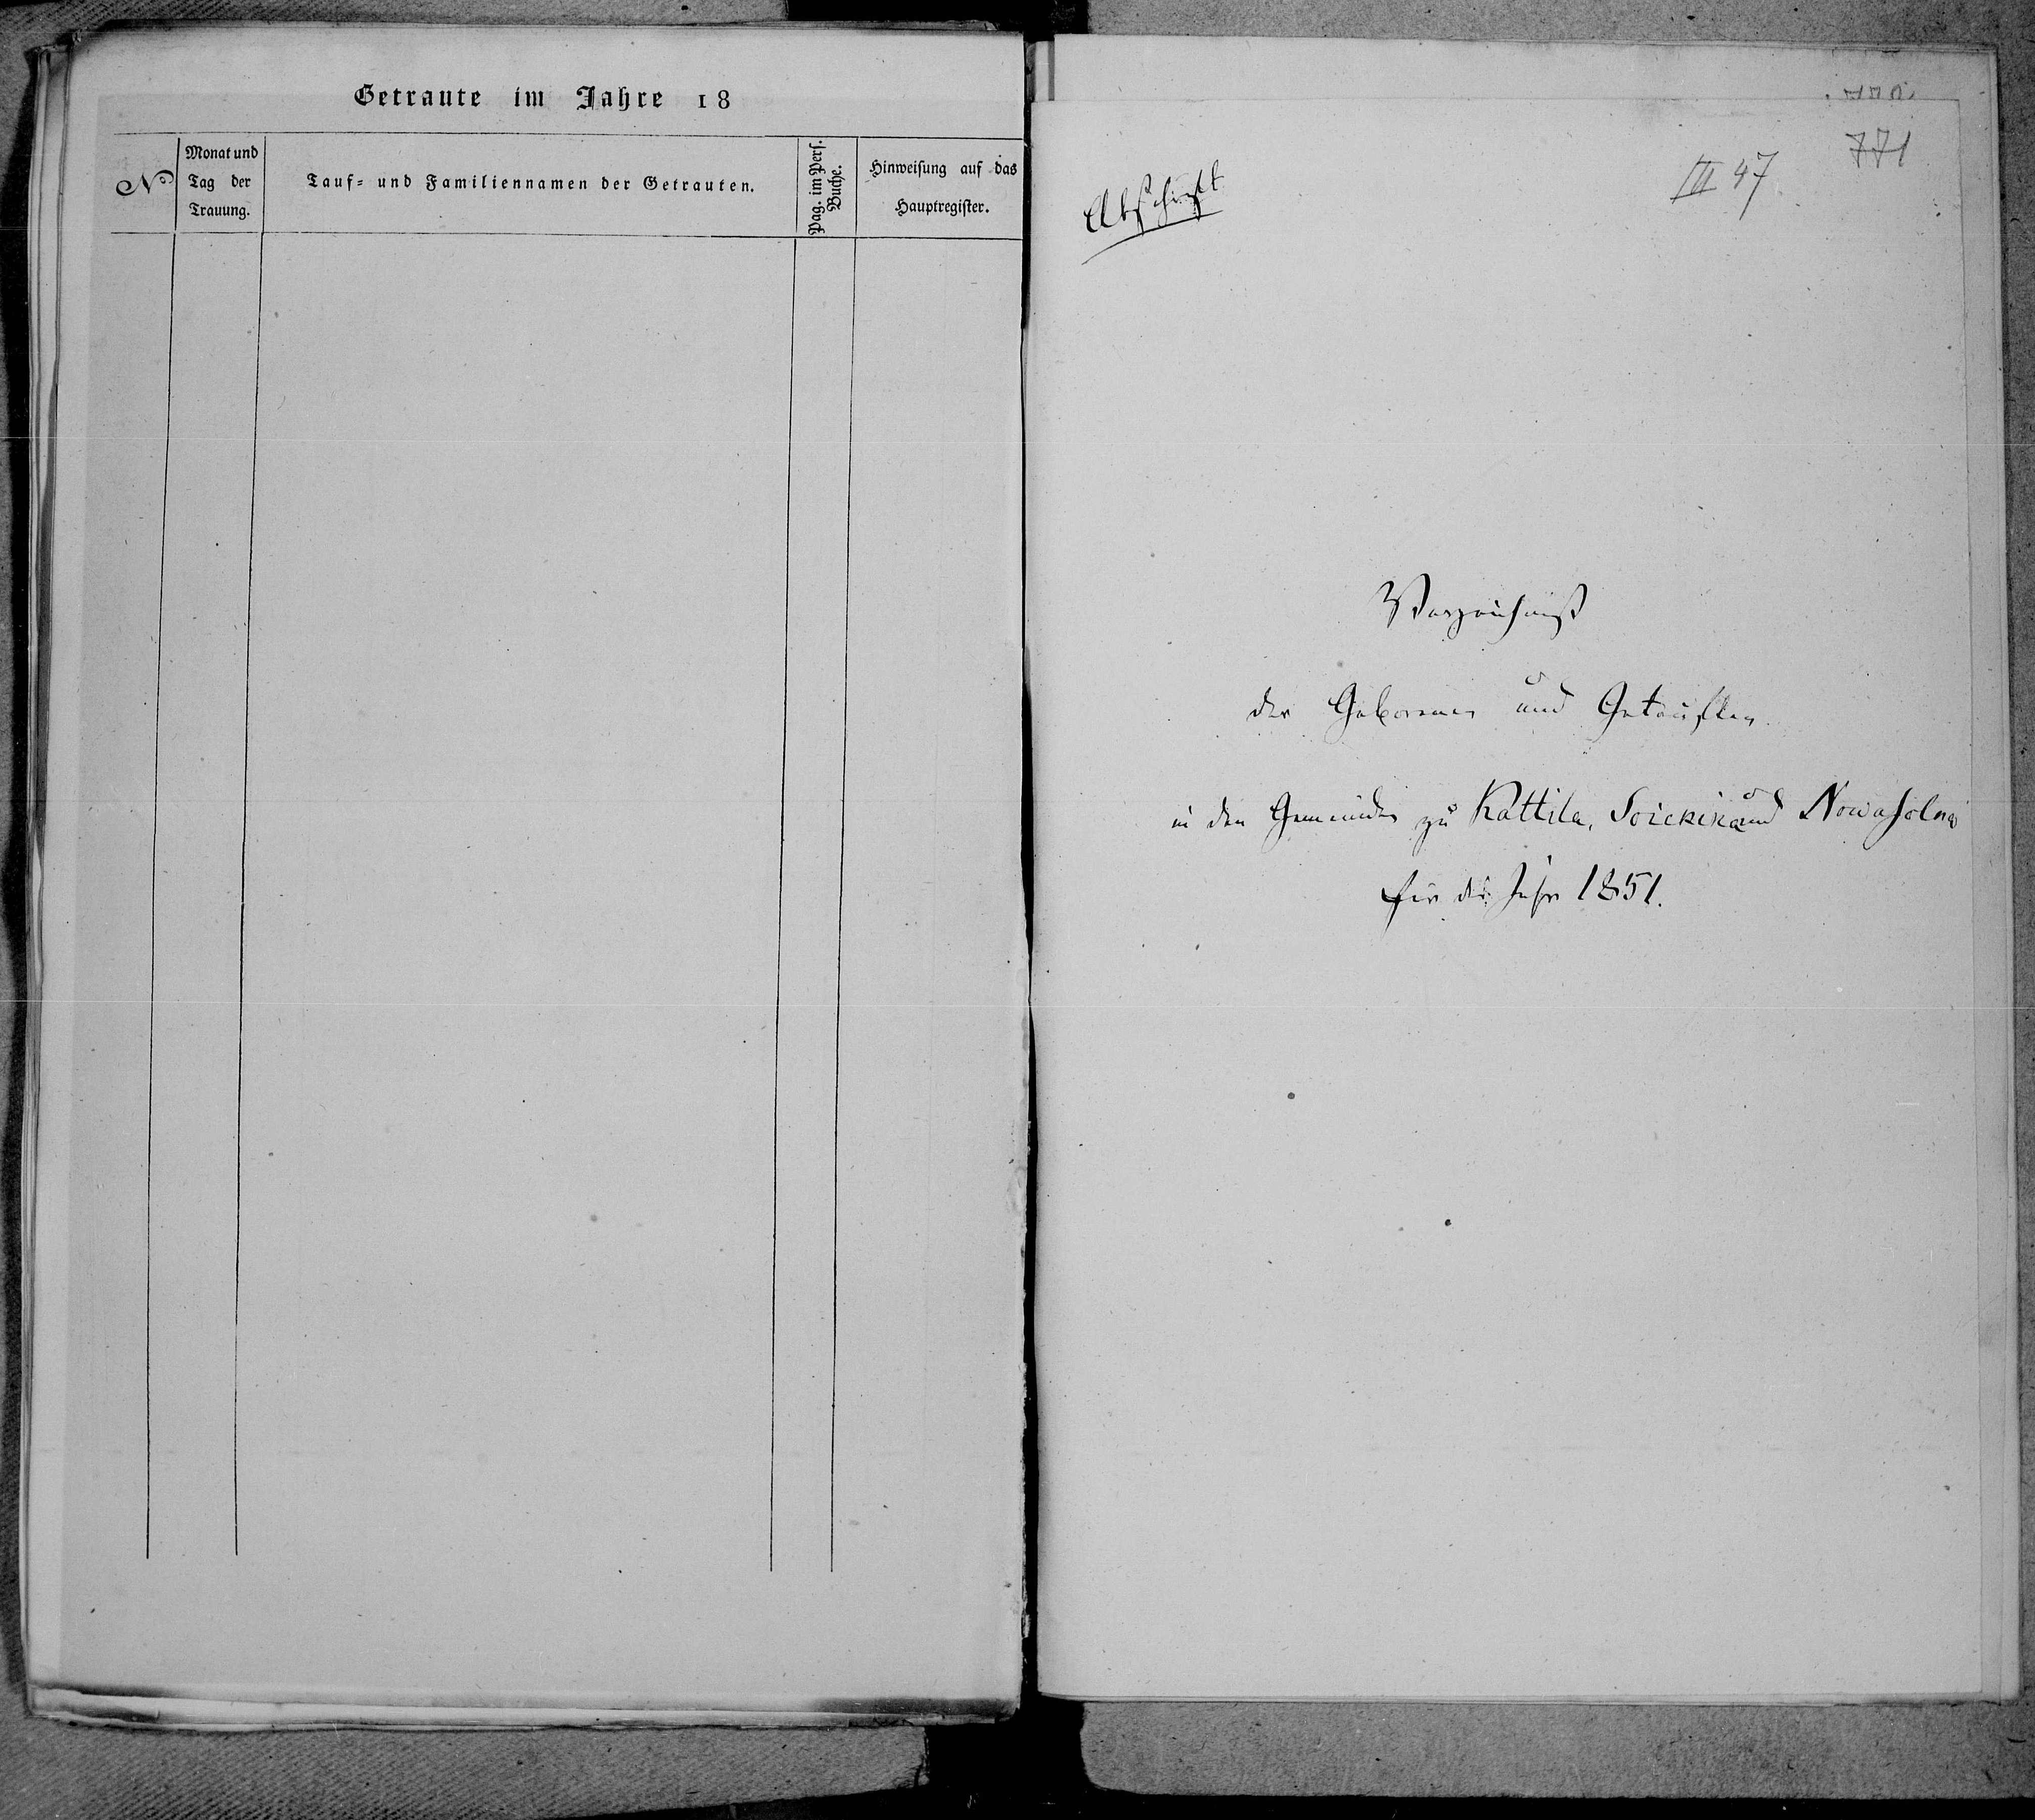 Getraute im Jahre 18
No
Monat und
Tag der
Trauung.
Tauf- und Familiennamen der Getrauten.
Pag. im Pers.
Buche.
Hinweisung auf das
Hauptregister.
771
III 47
Abschrift
Verzeichniß
der Geborenen und Getauften
in den Gemeinden zu Kattila, Soickina und Nowasolna
für das Jahr 1851.